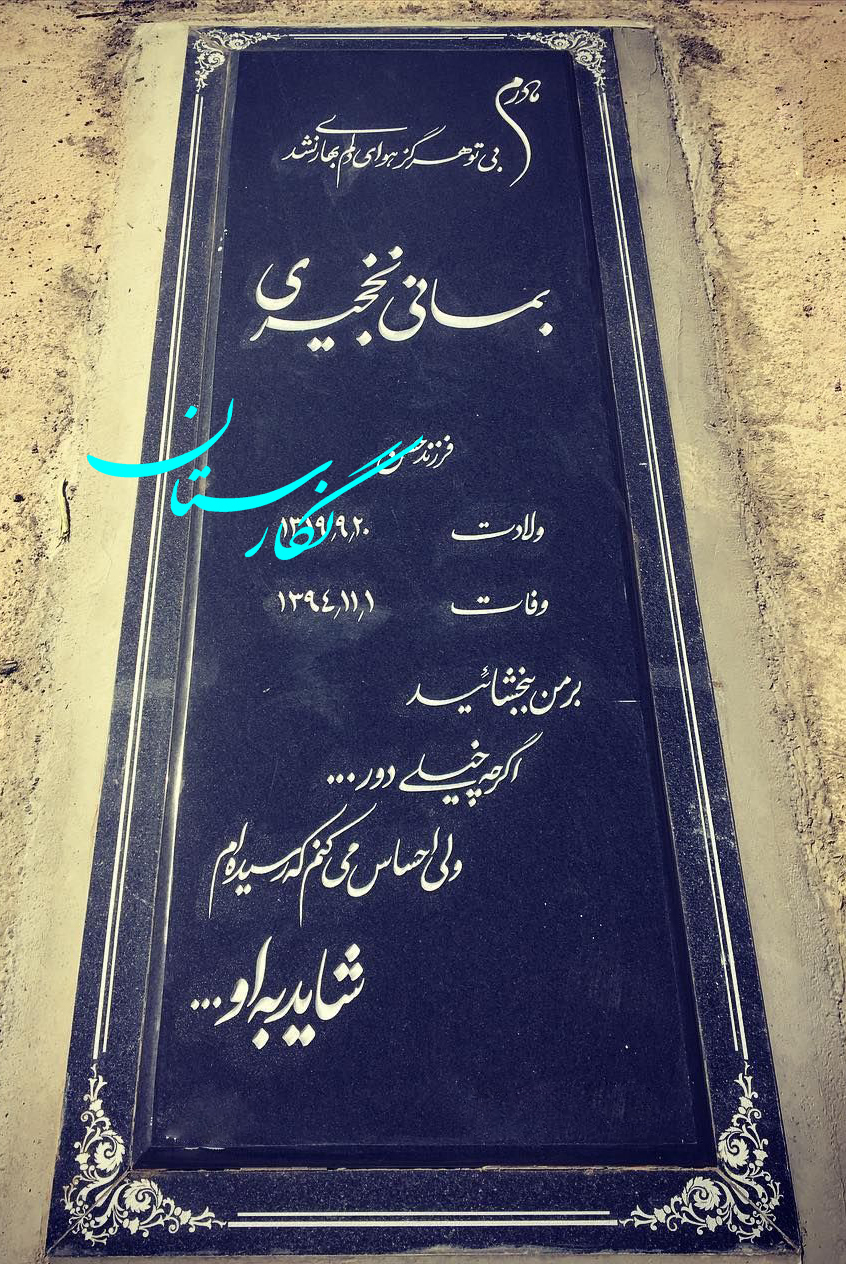 مادرم
بی تو هرگز هوای دلم بهاری نشد
بمانی نخجیری
فرزند حسن
نگارستان
ولادت ۱۳۱۹٫۹٫۲۰
وفات ۱۳۹٤٫۱۱٫۱
بر من ببخشائید
اگرچه خیلی دور...
ولی احساس می کنم که رسیده ام
شاید به او...